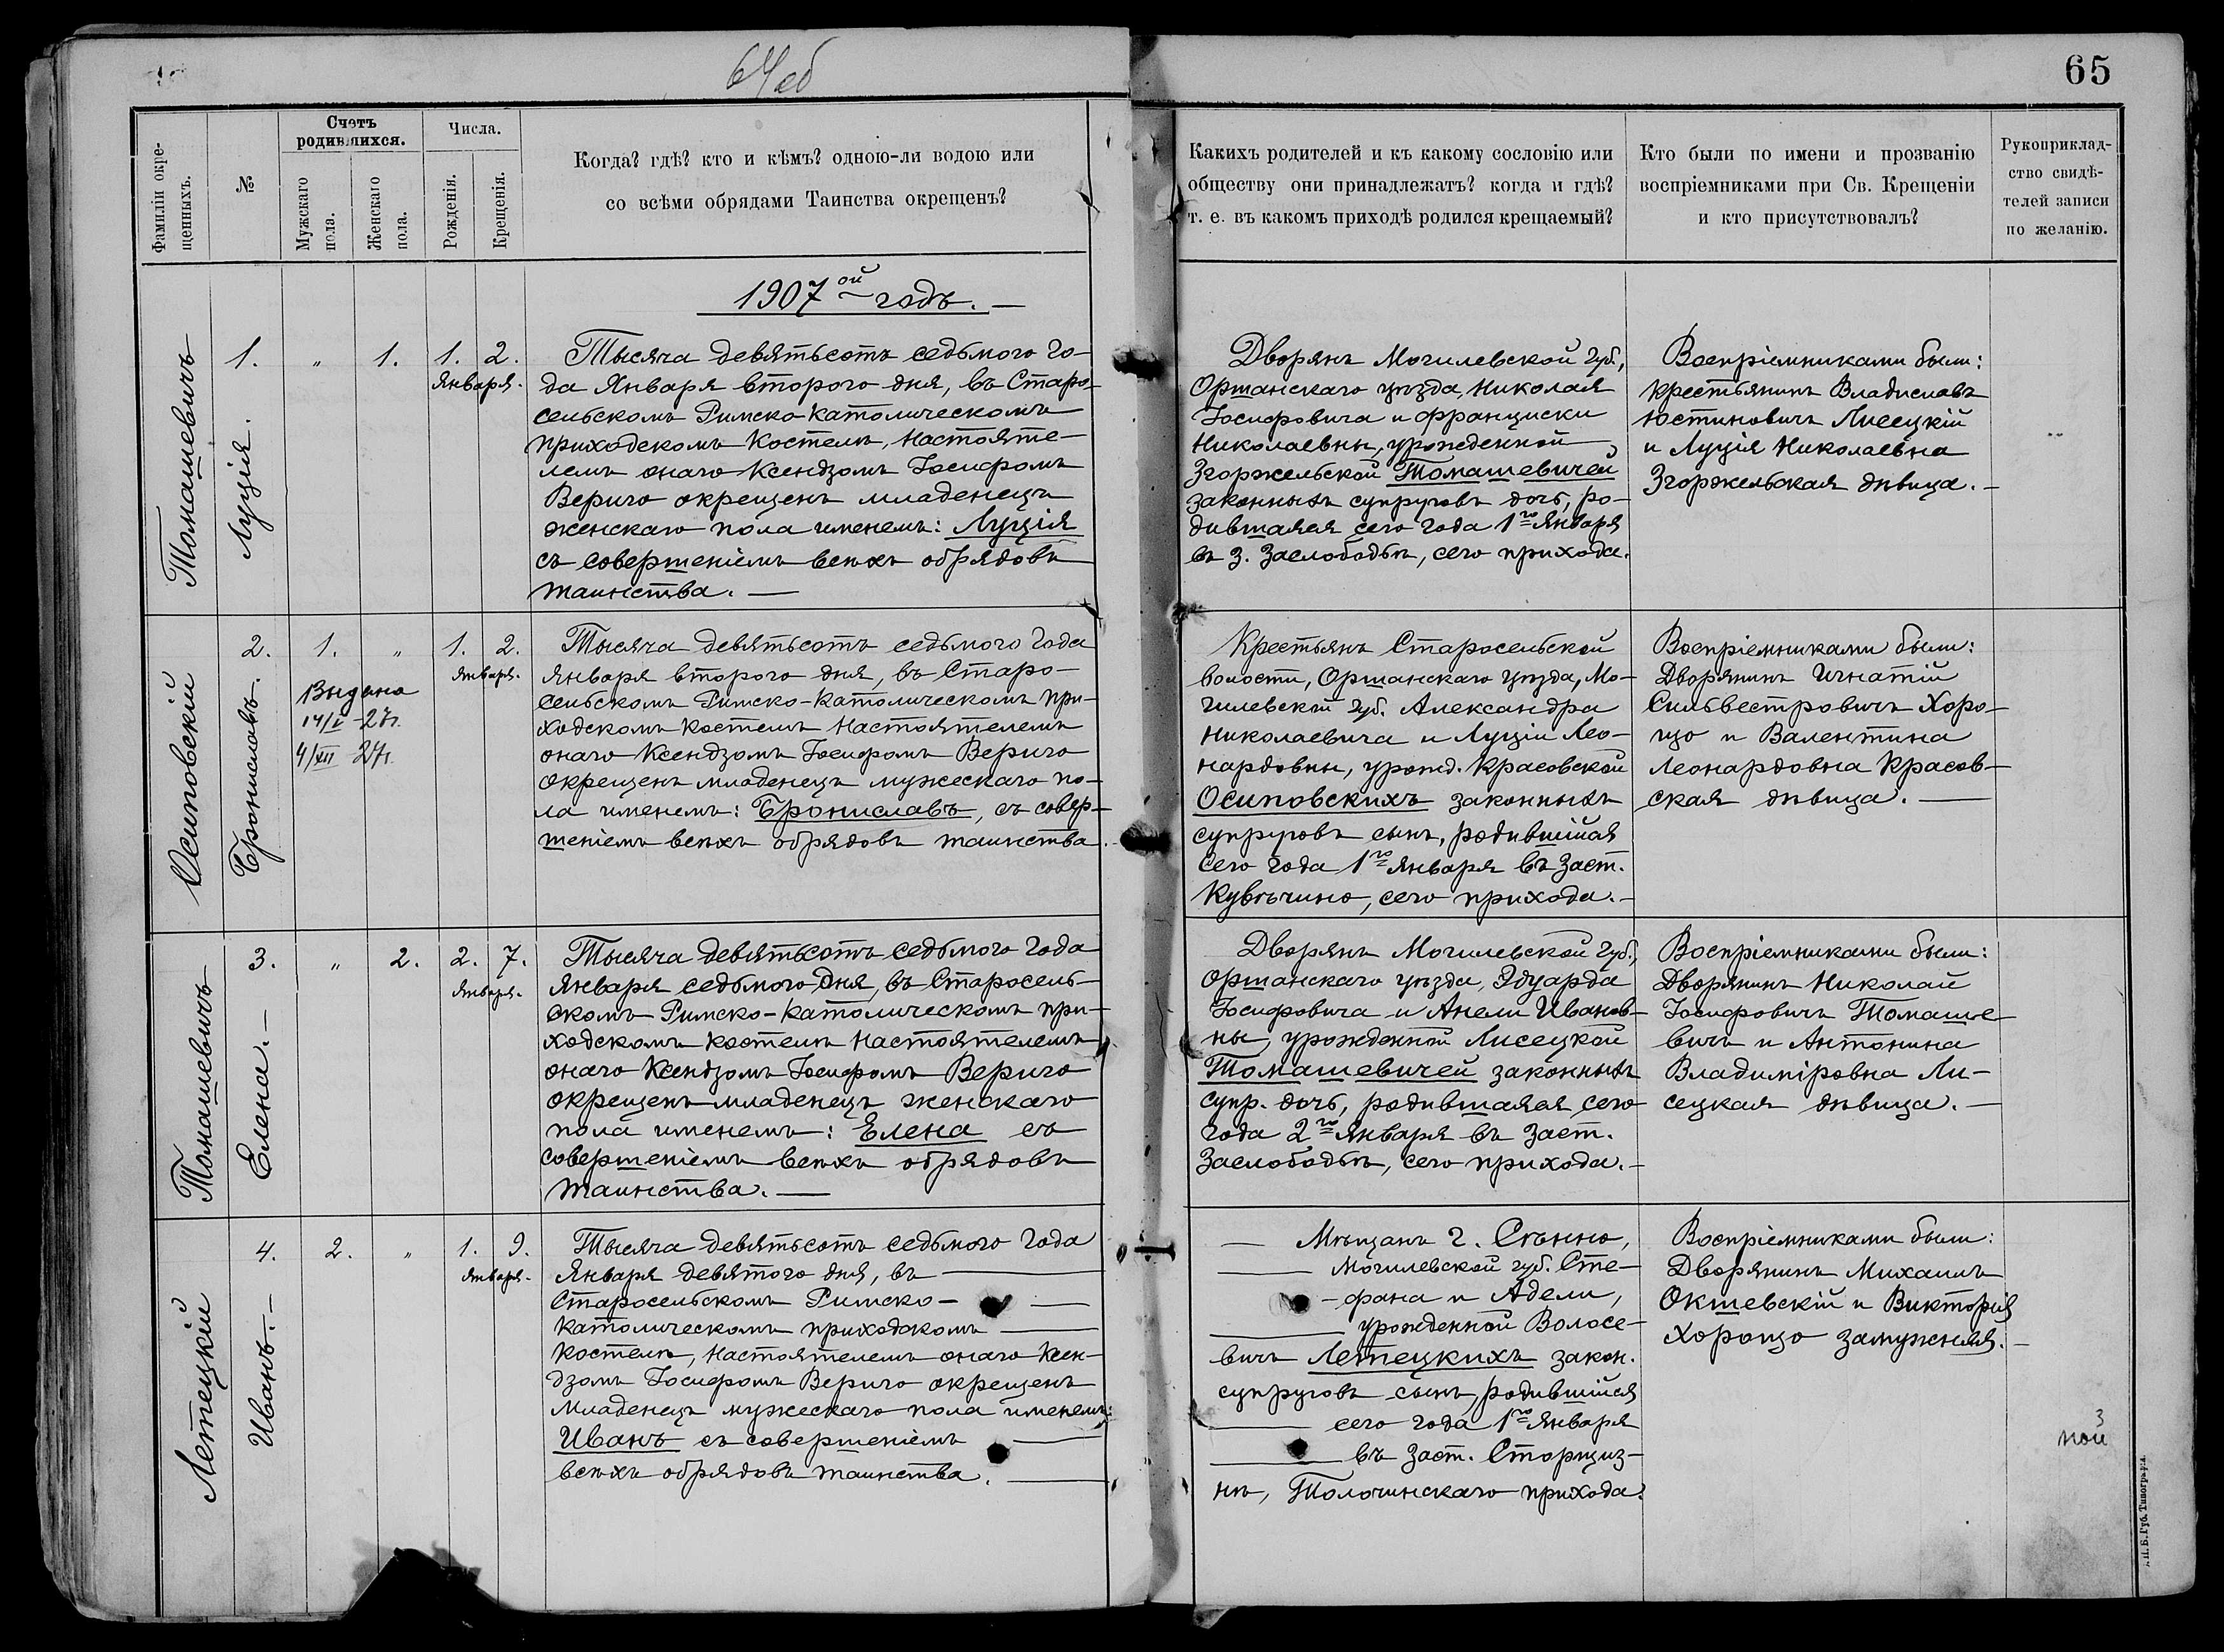 64об
65
Фамиліи окре-
щенныхъ.
№
Счетъ
родившихся.
Мужскаго
пола.
Женскаго
пола.
Числа.
Рожденія.
Крещенія.
Когда? гдѣ? кто и кѣмъ? одною-ли водою или
со всѣми обрядами Таинства окрещенъ?
Какихъ родителей и къ какому сословію или
обществу они принадлежатъ? когда и гдѣ?
т. е. въ какомъ приходѣ родился крещаемый?
Кто были по имени и прозванію
воспріемниками при Св. Крещеніи
и кто присутствовалъ?
Рукоприклад-
ство свидѣ-
телей записи
по желанію.
1907ой годъ. —
Томашевичъ
1.
Луція.
„
1.
1. 2.
Января.
Тысяча девятьсотъ седьмого го-
да Января второго дня, въ Старо-
сельскомъ Римско-католическомъ
приходскомъ Костелѣ, Настояте-
лемъ онаго Ксендзомъ Іосифомъ
Вериго окрещенъ младенецъ
женскаго пола именемъ: Луція
съ совершеніемъ всѣхъ обрядовъ
таинства. —
Дворянъ Могилевской губ.,
Оршанскаго уѣзда, Николая
Іосифовича и Франциски
Николаевны, урожденной
Згоржельской Томашевичей
законныхъ супруговъ дочь, ро-
дившаяся сего года 1го Января
въ з. Заслободьѣ, сего прихода.
Воспріемниками были:
Крестьянинъ Владиславъ
Юстиновичъ Лисецкій
и Луція Николаевна
Згоржельская дѣвица. —
Осиповскій
2.
Брониславъ.
1.
„
Выдана
14/V - 27г.
4/XII 27г.
1. 2.
Января.
Тысяча девятьсотъ седьмого года
Января второго дня, въ Старо-
сельскомъ Римско-Католическомъ при-
ходскомъ Костелѣ Настоятелемъ
онаго Ксендзомъ Іосифомъ Вериго
окрещенъ младенецъ мужескаго по-
ла именемъ: Брониславъ, съ совер-
шеніемъ всѣхъ обрядовъ таинства.
Крестьянъ Старосельской
волости, Оршанскаго уѣзда, Мо-
гилевской губ. Александра
Николаевича и Луціи Лео-
нардовны, урожд. Красовской
Осиповскихъ законныхъ
супруговъ сынъ, родившійся
сего года 1го Января въ заст.
Кувѣчино, сего прихода. —
Воспріемниками были:
Дворянинъ Игнатій
Сильвестровичъ Хоро-
що и Валентина
Леонардовна Красов-
ская дѣвица. —
Томашевичъ
3.
Елена. —
„
2.
2. 7.
Января.
Тысяча девятьсотъ седьмого года
Января седьмого дня, въ Старосель-
скомъ Римско-католическомъ при-
ходскомъ костелѣ Настоятелемъ
онаго Ксендзомъ Іосифомъ Вериго
окрещенъ младенецъ женскаго
пола именемъ: Елена съ
совершеніемъ всѣхъ обрядовъ
таинства. —
Дворянъ Могилевской губ.,
Оршанскаго уѣзда, Эдуарда
Іосифовича и Анели Иванов-
ны, урожденной Лисецкой
Томашевичей законныхъ
супр. дочь, родившаяся сего
года 2го Января въ заст.
Заслободьѣ, сего прихода. —
Воспріемниками были:
Дворянинъ Николай
Іосифовичъ Томаше-
вичъ и Антонина
Владиміровна Ли-
сецкая дѣвица. —
Летецкій
4.
Иванъ. —
2.
„
1. 9.
Января.
Тысяча девятьсотъ седьмого года
Января девятого дня, въ —
Старосельскомъ Римско-
католическомъ приходскомъ —
костелѣ, Настоятелемъ онаго Ксен-
дзомъ Іосифомъ Вериго окрещенъ
младенецъ мужескаго пола именемъ:
Иванъ съ совершеніемъ —
всѣхъ обрядовъ таинства. —
— Мѣщанъ г. Сѣнно,
— Могилевской губ. Сте-
- фана и Адели,
— урожденной Волосе-
вичъ Летецкихъ закон.
супруговъ сынъ, родившійся
— сего года 1го Января
— въ заст. Сторциз-
нѣ, Толочинскаго прихода.
Воспріемниками были:
Дворянинъ Михаилъ
Окшевскій и Викторія
Хорощо замужняя. —